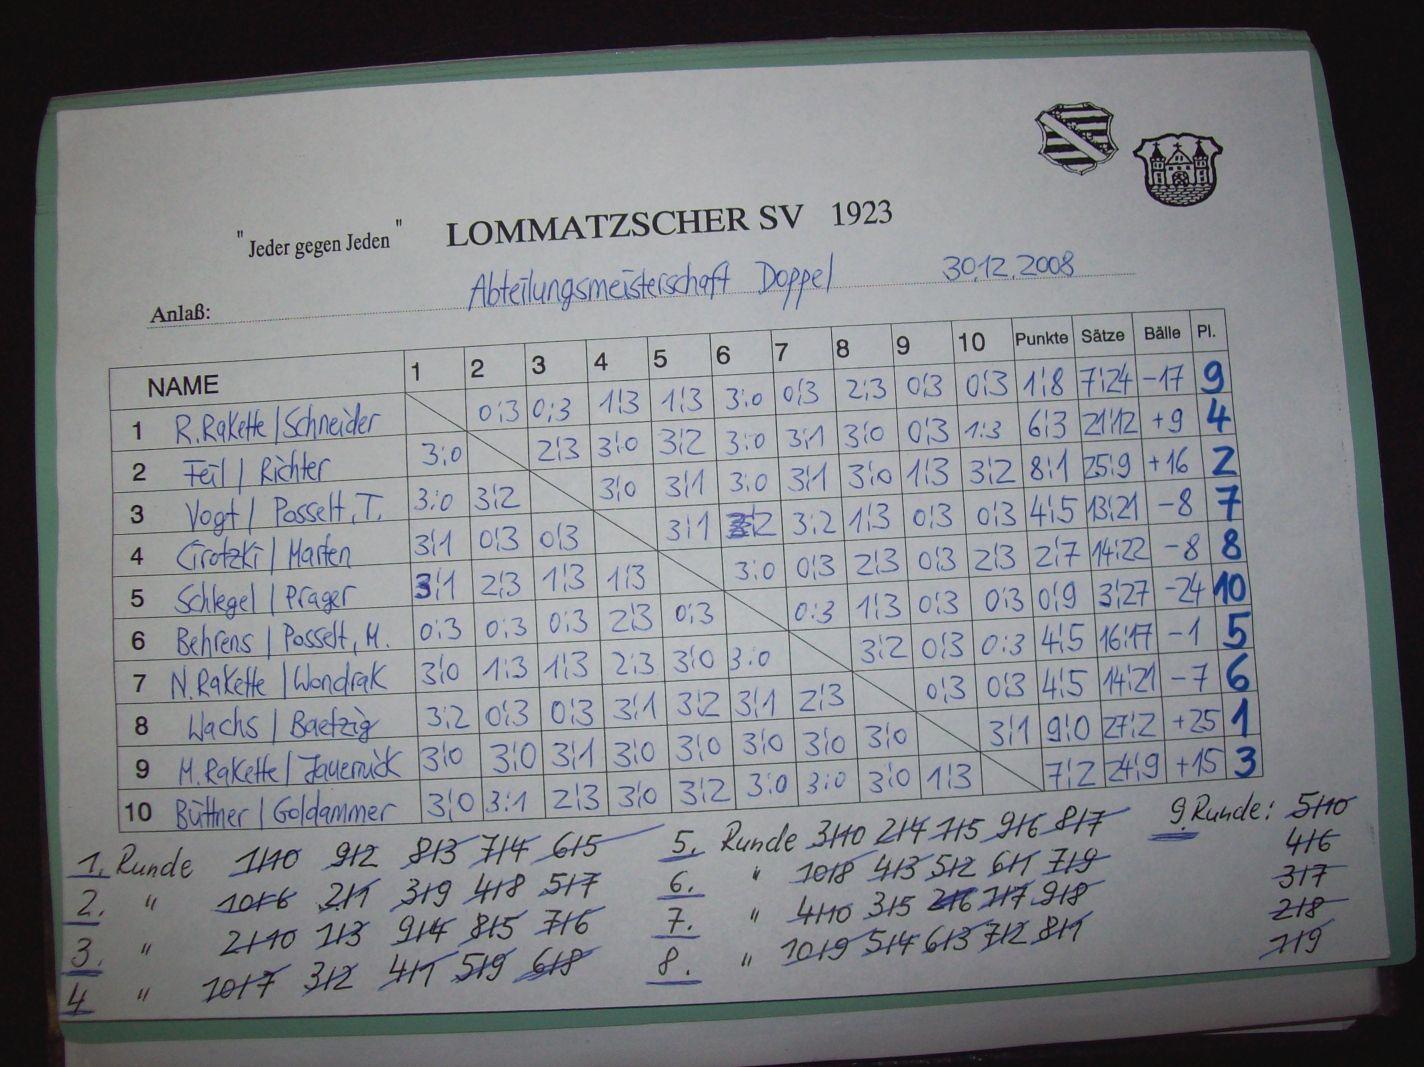 " Jeder gegen Jeden " LOMMATZSCHER SV 1923
Anlaß: Abteilungsmeisterschaft Doppel 30.12.2008
NAME 1 2 3 4 5 6 7 8 9 10 Punkte Sätze Bälle Pl.
1 R.Rakette / Schneider 0:3 0:3 1:3 1:3 3:0 0:3 2:3 0:3 0:3 1:8 7:24 -17 9
2 Feil / Richter 3:0 2:3 3:0 3:2 3:0 3:1 3:0 0:3 1:3 6:3 21:12 +9 4
3 Vogt / Posselt, T. 3:0 3:2 3:0 3:1 3:0 3:1 3:0 1:3 3:2 8:1 25:9 +16 2
4 Cirotzki / Marten 3:1 0:3 0:3 3:1 3:2 3:2 1:3 0:3 0:3 4:5 13:21 -8 7
5 Schlegel / Prager 3:1 2:3 1:3 1:3 3:0 0:3 2:3 0:3 2:3 2:7 14:22 -8 8
6 Behrens / Posselt, M. 0:3 0:3 0:3 2:3 0:3 0:3 1:3 0:3 0:3 0:9 3:27 -24 10
7 N.Rakette / Wondrak 3:0 1:3 1:3 2:3 3:0 3:0 3:2 0:3 0:3 4:5 16:17 -1 5
8 Wachs / Baetzig 3:2 0:3 0:3 3:1 3:2 3:1 2:3 0:3 0:3 4:5 14:21 -7 6
9 M.Rakette / Jauernick 3:0 3:0 3:1 3:0 3:0 3:0 3:0 3:0 3:1 9:0 27:2 +25 1
10 Büttner / Goldammer 3:0 3:1 2:3 3:0 3:2 3:0 3:0 3:0 1:3 7:2 24:9 +15 3
1. Runde 1/10 9/2 8/3 7/4 6/5
2. " 10/6 2/1 3/9 4/8 5/7
3. " 2/10 1/3 9/4 8/5 7/6
4. " 10/7 3/2 4/1 5/9 6/8
5. Runde 3/10 2/4 1/5 9/6 8/7
6. " 10/8 4/3 5/2 6/1 7/9
7. " 4/10 3/5 2/6 1/7 9/8
8. " 10/9 5/4 6/3 7/2 8/1
9. Runde: 5/10
4/6
3/7
2/8
1/9